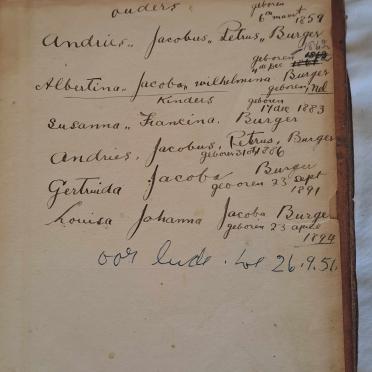 ouders
geboren
6en maart 1859
Andries,, Jacobus,, Petrus,, Burger
1862
geboren
Albertina,, Jacoba,, wilhelmina Burger
geboren Nel
Kinders
geboren
17 dec 1883
Susanna,, Francina. Burger
Andries, Jacobus, Petrus, Burger
geboren 1886
Gertruida Jacoba Burger
geboren 23 sept
1891
Louisa Johanna Jacoba Burger
geboren 23 april
1894
oorlede 26.9.51.